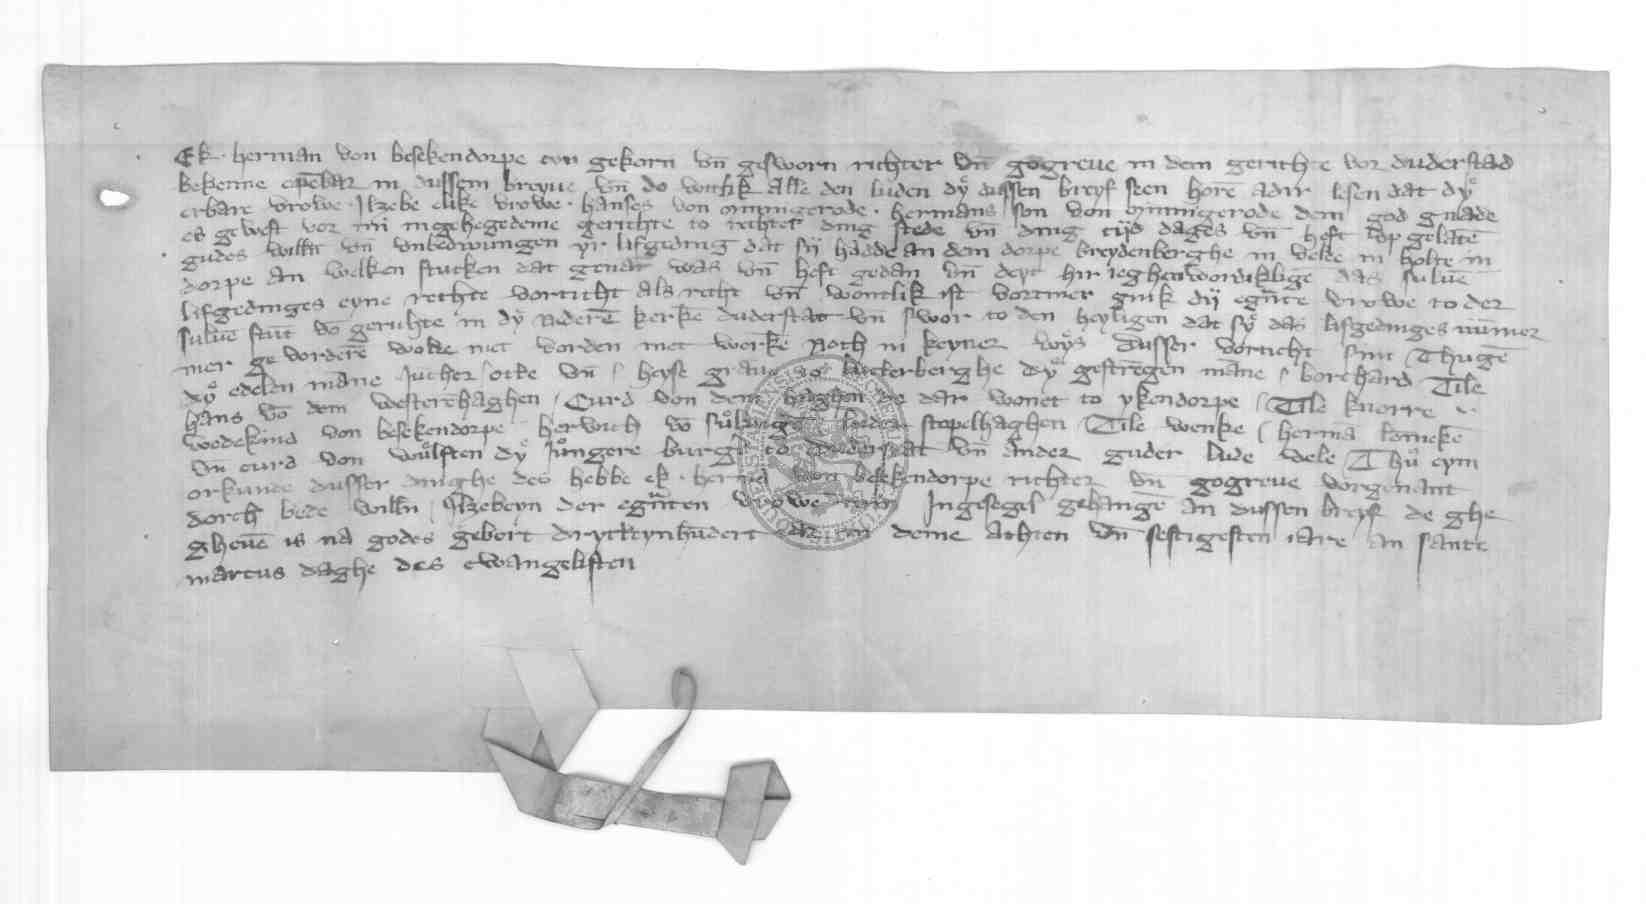 Ek · herman von besekendorpe eyn gekorn vn̄ gesworn richter vn̄ gogreue in dem gerichte vor duderstad
bekenne openbar in dussem breyue vn̄ do witlik alle den luden dy dussen breyf seen horē adir lesen dat dy
erbare vrowe · Ilzebe elike vrowe · hanses von mīnigerode · hermans son von mīnigerode dem god gnade
es gewest vor mi ingehegedeme gerichte to rechter ding stede vn̄ ding tijd dages vn̄ heft vp gelatē
gudes willn̄ vn̄ vnbedwungen yr lifgeding dat sy hadde an dem dorpe breydenberghe in velde in holte in
dorpe an welken stucken dat genāt was vn̄ heft gedan vn̄ deyt hir ieghenwordiklige das suluē
lifgedinges eyne rechte vorticht als recht vn̄ wontlik ist vortmer gink dy egn̄te vrowe to der
suluē stūt vō gerichte in dy nederē kerkē duderstat vn̄ swor to den heyligen dat sy das lifgedinges nūmer
mer ge vorderē wolde met worden met werkē noch in keyner wys dusser vorticht sint Thugē
dy edelen māne Jucher otte vn̄ heyse grauē to lutterberghe dy gestrēgen māne borchard Tile
hans vō dem westerēhaghen Curd von dem haghen de dar wonet to ykendorpe Tile knorre
wedekind von besekendorpe herwich vō stapelhaghen Tile wenke hermā
vn̄ curd von wulften dy Jungere burgē to duderstat vn̄ ander guder lude vele Thu eym
orkunde dusser dinghe des hebbe ek · herman von besekendorpe richter vn̄ gogreue vorgenant
dorch bede willn̄ Ilzebeyn der egn̄ten vrowen myn Ingesegel gehangē an dussen breyf de ghe
gheuē is na godes gebort drytteynhūdert iar in deme achten vn̄ sestigesten iare an sante
marcus daghe des ewangelisten